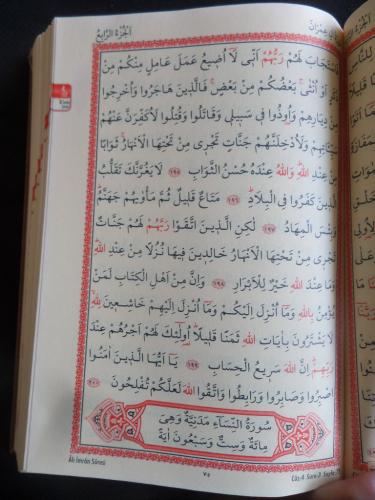 اَلْجُزْءُ الرَّابِعُ
عِمْرَانَ
فَاسْتَجَابَ لَهُمْ رَبُّهُمْ اَنّٖى لَٓا اُضٖيعُ عَمَلَ عَامِلٍ مِنْكُمْ مِنْ
ذَكَرٍ اَوْ اُنْثٰىۚ بَعْضُكُمْ مِنْ بَعْضٍۚ فَالَّذٖينَ هَاجَرُوا وَاُخْرِجُوا
مِنْ دِيَارِهِمْ وَاُوذُوا فٖى سَبٖيلٖى وَقَاتَلُوا وَقُتِلُوا لَاُكَفِّرَنَّ عَنْهُمْ
سَيِّـَٔاتِهِمْ وَلَاُدْخِلَنَّهُمْ جَنَّاتٍ تَجْرٖى مِنْ تَحْتِهَا الْاَنْهَارُۚ ثَوَابًا
مِنْ عِنْدِ اللّٰهِۜ وَاللّٰهُ عِنْدَهُ حُسْنُ الثَّوَابِ ١٩٥ لَا يَغُرَّنَّكَ تَقَلُّبُ
الَّذٖينَ كَفَرُوا فِى الْبِلَادِۜ ١٩٦ مَتَاعٌ قَلٖيلٌ ثُمَّ مَأْوٰيهُمْ جَهَنَّمُۜ
وَبِئْسَ الْمِهَادُ ١٩٧ لٰكِنِ الَّذٖينَ اتَّقَوْا رَبَّهُمْ لَهُمْ جَنَّاتٌ
تَجْرٖى مِنْ تَحْتِهَا الْاَنْهَارُ خَالِدٖينَ فٖيهَا نُزُلًا مِنْ عِنْدِ اللّٰهِۜ
وَمَا عِنْدَ اللّٰهِ خَيْرٌ لِلْاَبْرَارِ ١٩٨ وَاِنَّ مِنْ اَهْلِ الْكِتَابِ لَمَنْ
يُؤْمِنُ بِاللّٰهِ وَمَٓا اُنْزِلَ اِلَيْكُمْ وَمَٓا اُنْزِلَ اِلَيْهِمْ خَاشِعٖينَ لِلّٰهِۙ
لَا يَشْتَرُونَ بِاٰيَاتِ اللّٰهِ ثَمَنًا قَلٖيلًاۜ اُو۬لٰٓئِكَ لَهُمْ اَجْرُهُمْ عِنْدَ
رَبِّهِمْۜ اِنَّ اللّٰهَ سَرٖيعُ الْحِسَابِ ١٩٩ يَٓا اَيُّهَا الَّذٖينَ اٰمَنُوا
اصْبِرُوا وَصَابِرُوا وَرَابِطُوا وَاتَّقُوا اللّٰهَ لَعَلَّكُمْ تُفْلِحُونَ ٢٠٠
سُورَةُ النِّسَٓاءِ مَدَنِيَّةٌ وَهِىَ
مِائَةٌ وَسِتٌّ وَسَبْعُونَ اٰيَةً
Âl-i İmrân Sûresi
٧٥